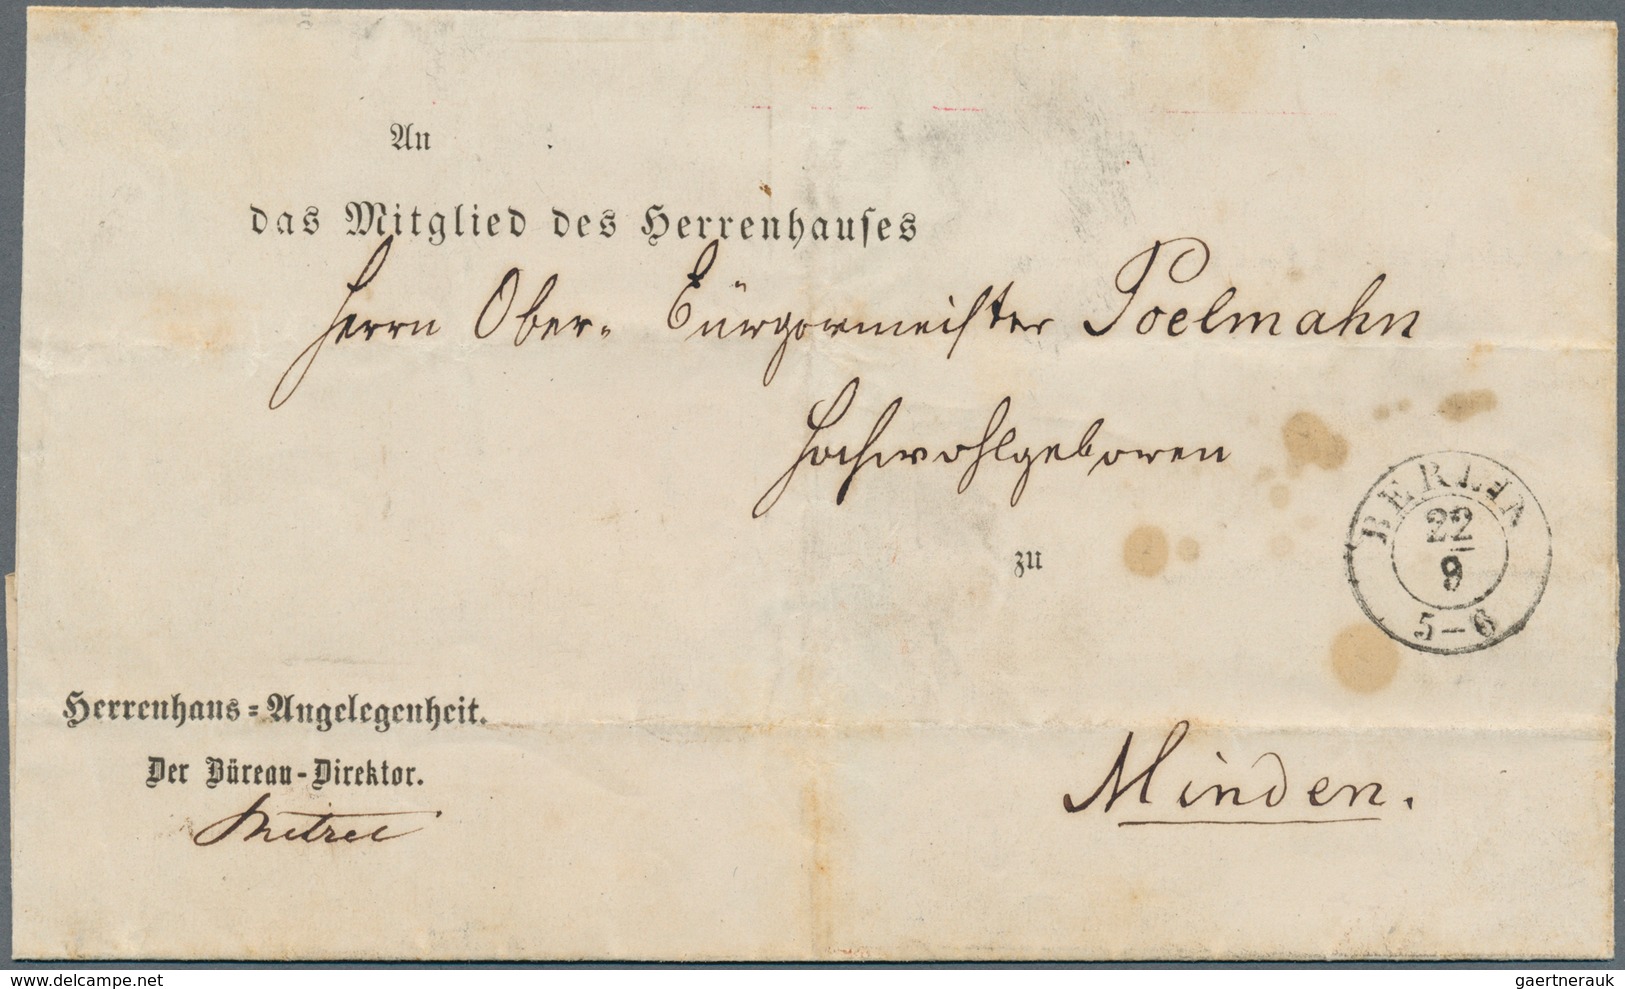 An
das Mitglied des Herrenhauſes
Herrn Ober- Bürgermeiſter Poelmahn
Hochwohlgeboren
BERLIN
22
9
5-6
zu
Herrenhaus-Angelegenheit.
Der Büreau-Direktor.
Minden.
www.delcampe.net
gaertnerauk